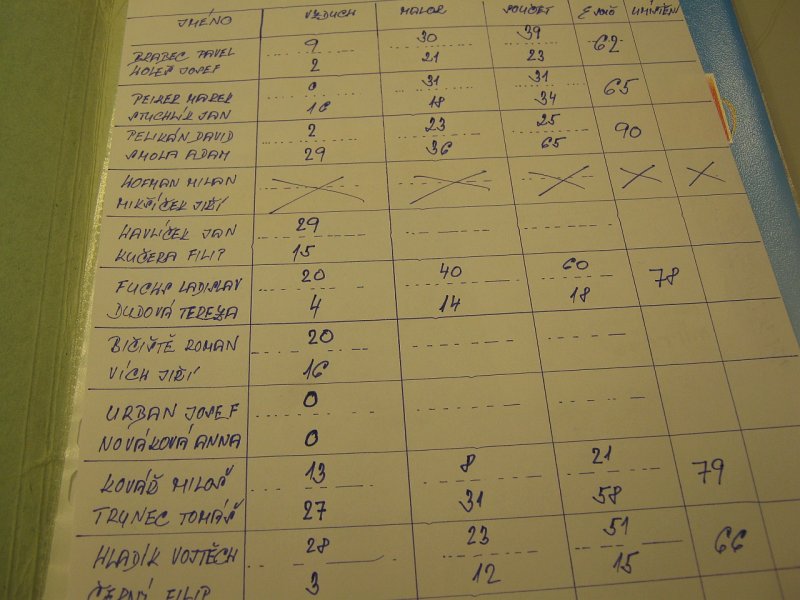 JMÉNO VZDUCH MALOR. SOUČET UMÍSTĚNÍ
BRABEC PAVEL 9 30 39 62
HOLEŠ JOSEF 2 21 23
PEIKER MAREK 0 31 31 65
STUCHLÍK JAN 16 18 34
PELIKÁN DAVID 2 23 25 90
SMOLA ADAM 29 36 65
HOFMAN MILAN
MIKŠÍČEK JIŘÍ
HAVLÍČEK JAN 29
KUČERA FILIP 15
FUCHS LADISLAV 20 40 60 78
DUDOVÁ TEREZA 4 14 18
BIČIŠTĚ ROMAN 20
VÍCH JIŘÍ 16
URBAN JOSEF 0
NOVÁKOVÁ ANNA 0
KOVÁŘ MILOŠ 13 8 21 79
TRYNEC TOMÁŠ 27 31 58
HLADÍK VOJTĚCH 28 23 51 66
ČERNÝ FILIP 3 12 15